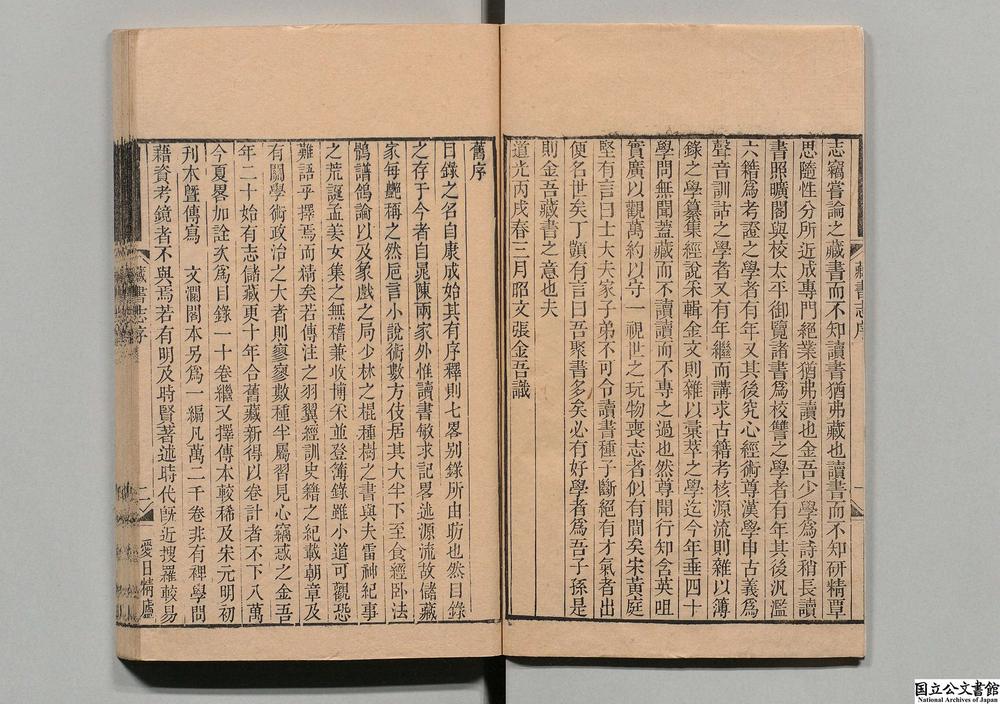 志竊嘗論之藏書而不知讀書猶弗藏也讀書而不知研精覃
思隨性分所近成專門絕業猶弗讀也金吾少學為詩稍長讀
書照曠閣與校太平御覽諸書爲校讐之學者有年其後汎濫
六籍爲考證之學者有年又其後究心經術尊漢學申古義爲
聲音訓詁之學者又有年繼而講求古籍考核源流則雜以簿
錄之學纂集經說采輯金文則雜以彙萃之學迄今年垂四十
學問無聞蓋藏而不讀讀而不專之過也然尊聞行知含英咀
實廣以觀萬約以守一視世之玩物喪志者似有間矣宋黃庭
堅有言曰士大夫家子弟不可令讀書種子斷絕有才氣者出
便名世矣丁顗有言曰吾聚書多矣必有好學者爲吾子孫是
則金吾藏書之意也夫
道光丙戌春三月昭文張金吾識
藏書志序
一
舊序
目錄之名自康成始其有序釋則七畧别錄所由昉也然目錄
之存于今者自晁陳兩家外惟讀書敏求記畧述源流故儲藏
家每艷稱之然卮言小說術數方伎居其大半下至食經臥法
鶺譜鴿論以及象戲之局少林之棍種樹之書與夫雷神紀事
之荒誕孟姜女集之無稽兼收博采並登簿錄雖小道可觀恐
難語乎擇焉而精矣若傳注之羽翼經訓史籍之紀載朝章及
有關學術政治之大者則寥寥數種半屬習見心竊惑之金吾
年二十始有志儲藏更十年合舊藏新得以卷計者不下八萬
今夏畧加詮次爲目錄一十卷繼又擇傳本較稀及宋元明初
刋本曁傳寫　文瀾閣本另爲一編凡萬二千卷非有裨學問
藉資考鏡者不與焉若有明及時賢著述時代既近搜羅較易
藏書志序
二
愛日精廬
国立公文書館
National Archives of Japan